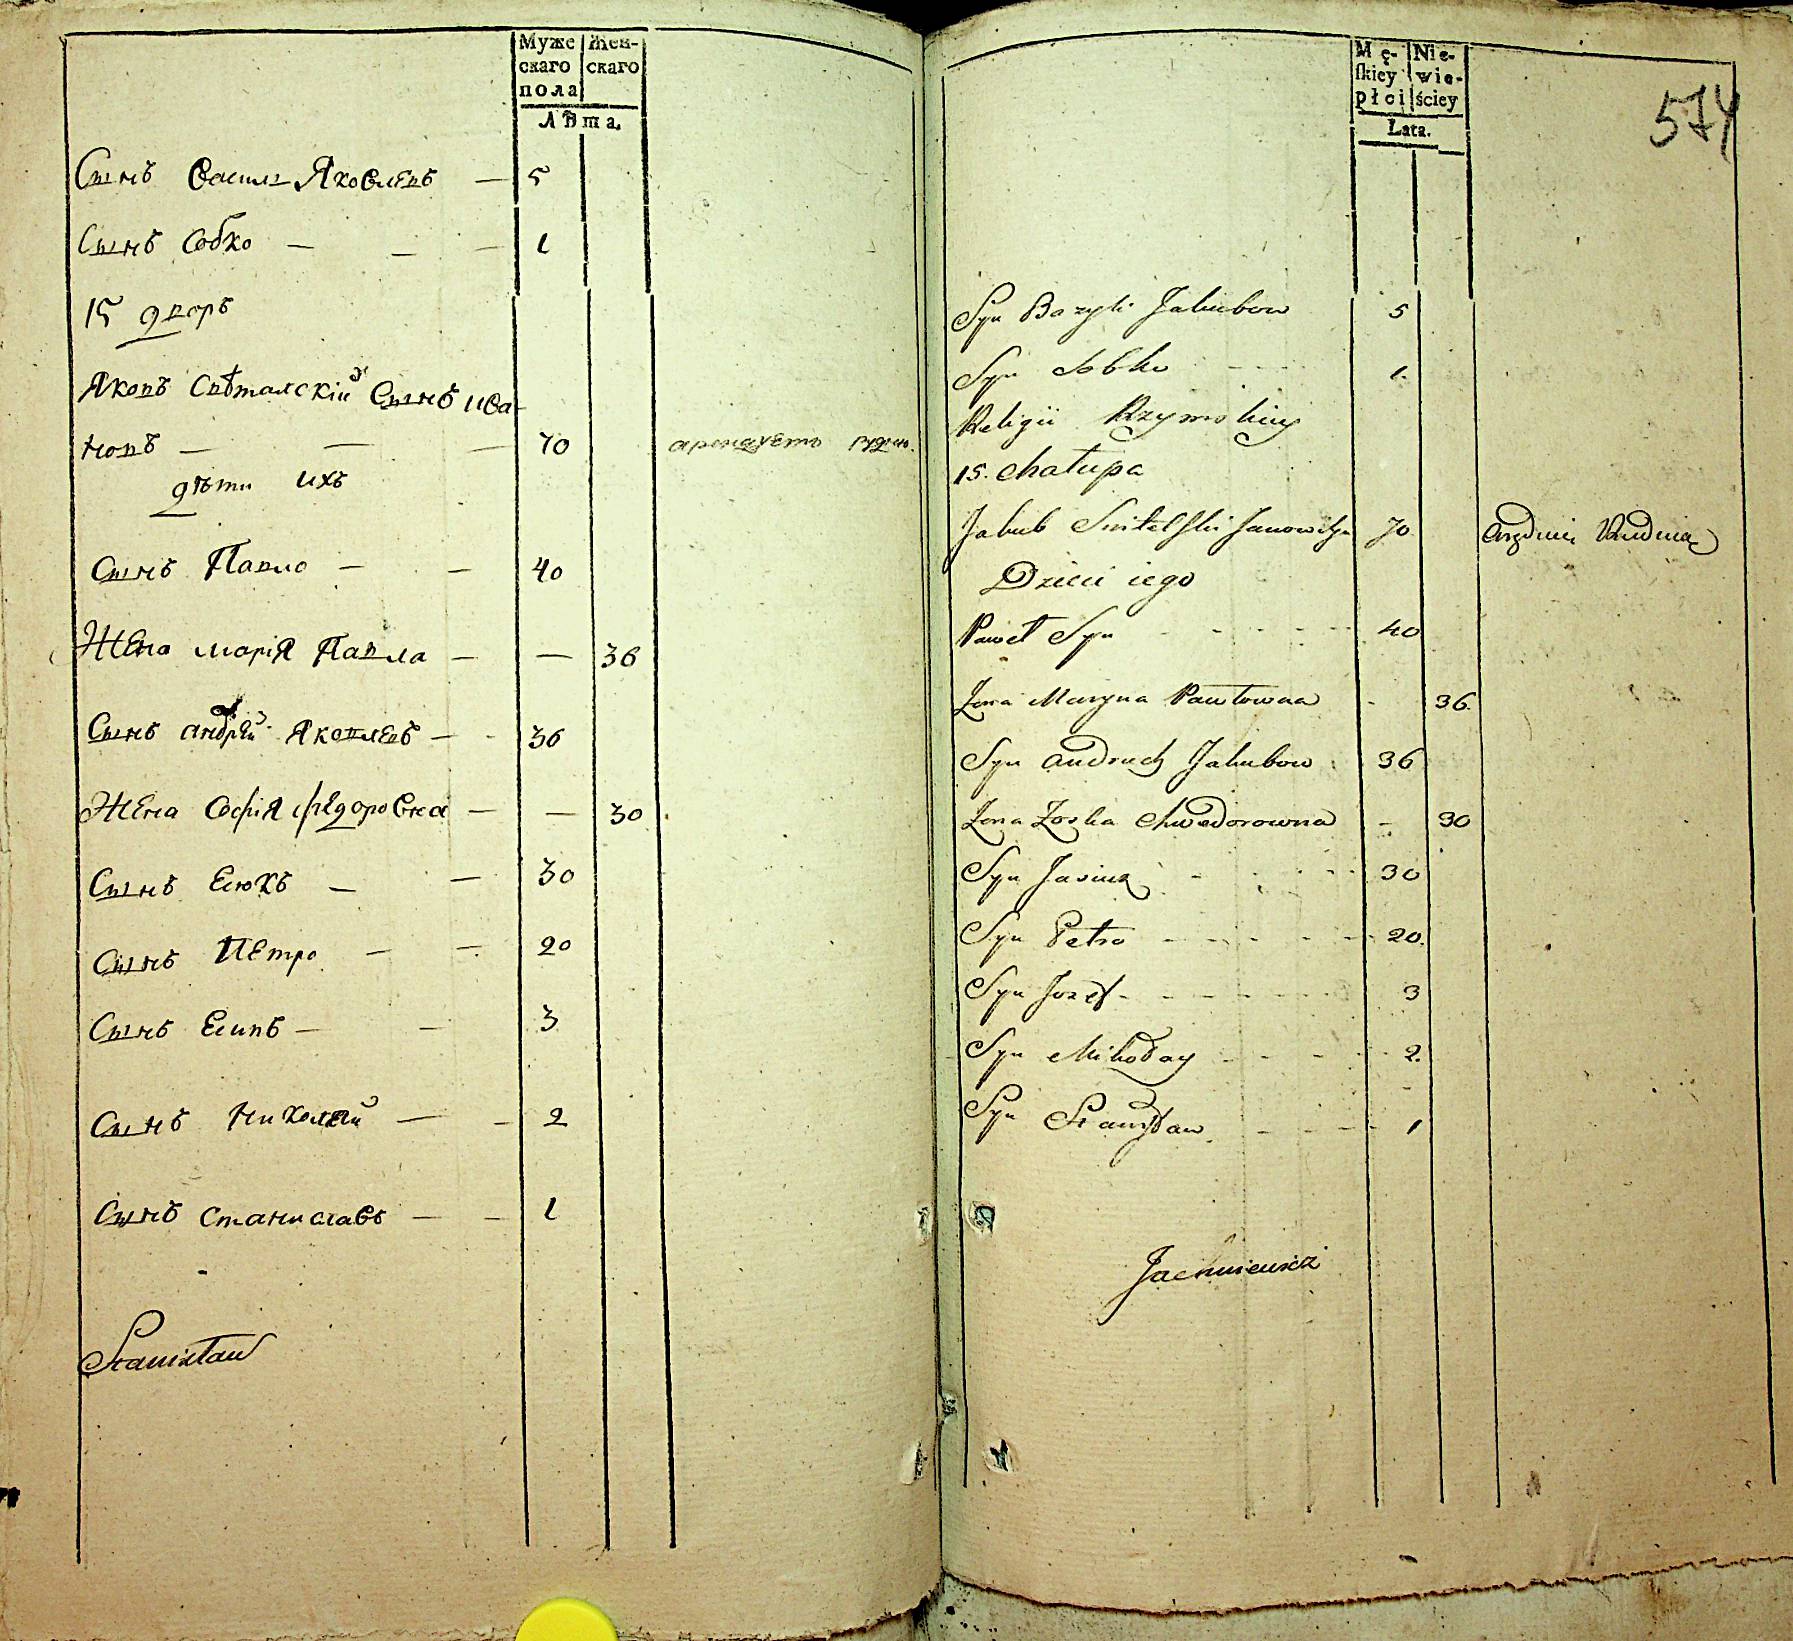 Муже
скаго
пола
Жен-
скаго
Лѣта.
Сынъ Василь Яковлевъ — 5
Сынъ Собко — — — 1
15 дворъ
Яковъ Свѣталскій Сынъ Ива-
новъ — — — 70 арендуетъ
дѣти ихъ
Сынъ Павло — — 40
Жена Марія Павла — — 36
Сынъ андрей Яковлевъ — - 36
Жена Софія Федоровна — — 30
Сынъ Есюхъ — — 30
Сынъ Петро — — 20
Сынъ Есипъ — — 3
Сынъ Николай — - 2
Сынъ Станиславъ — - 1
Stanisław
574
Mę-
skiey
płci
Nie-
wie-
ściey
Lata.
Syn Bazyli Jakubow 5
Syn Sobko 1.
Religii Rzymskiey
15. Chałupa
Jakub Switelski Janowicz 70
Dzieci iego
Paweł Syn 40
Żona Maryna Pawłowna - 36.
Syn Andruch Jakubow 36
Żona Zoska Chwedorowna - 30
Syn Jasiuk 30
Syn Petro 20.
Syn Jozef 3
Syn Mikołay 2.
Syn Stanisław 1
Jachniewicz